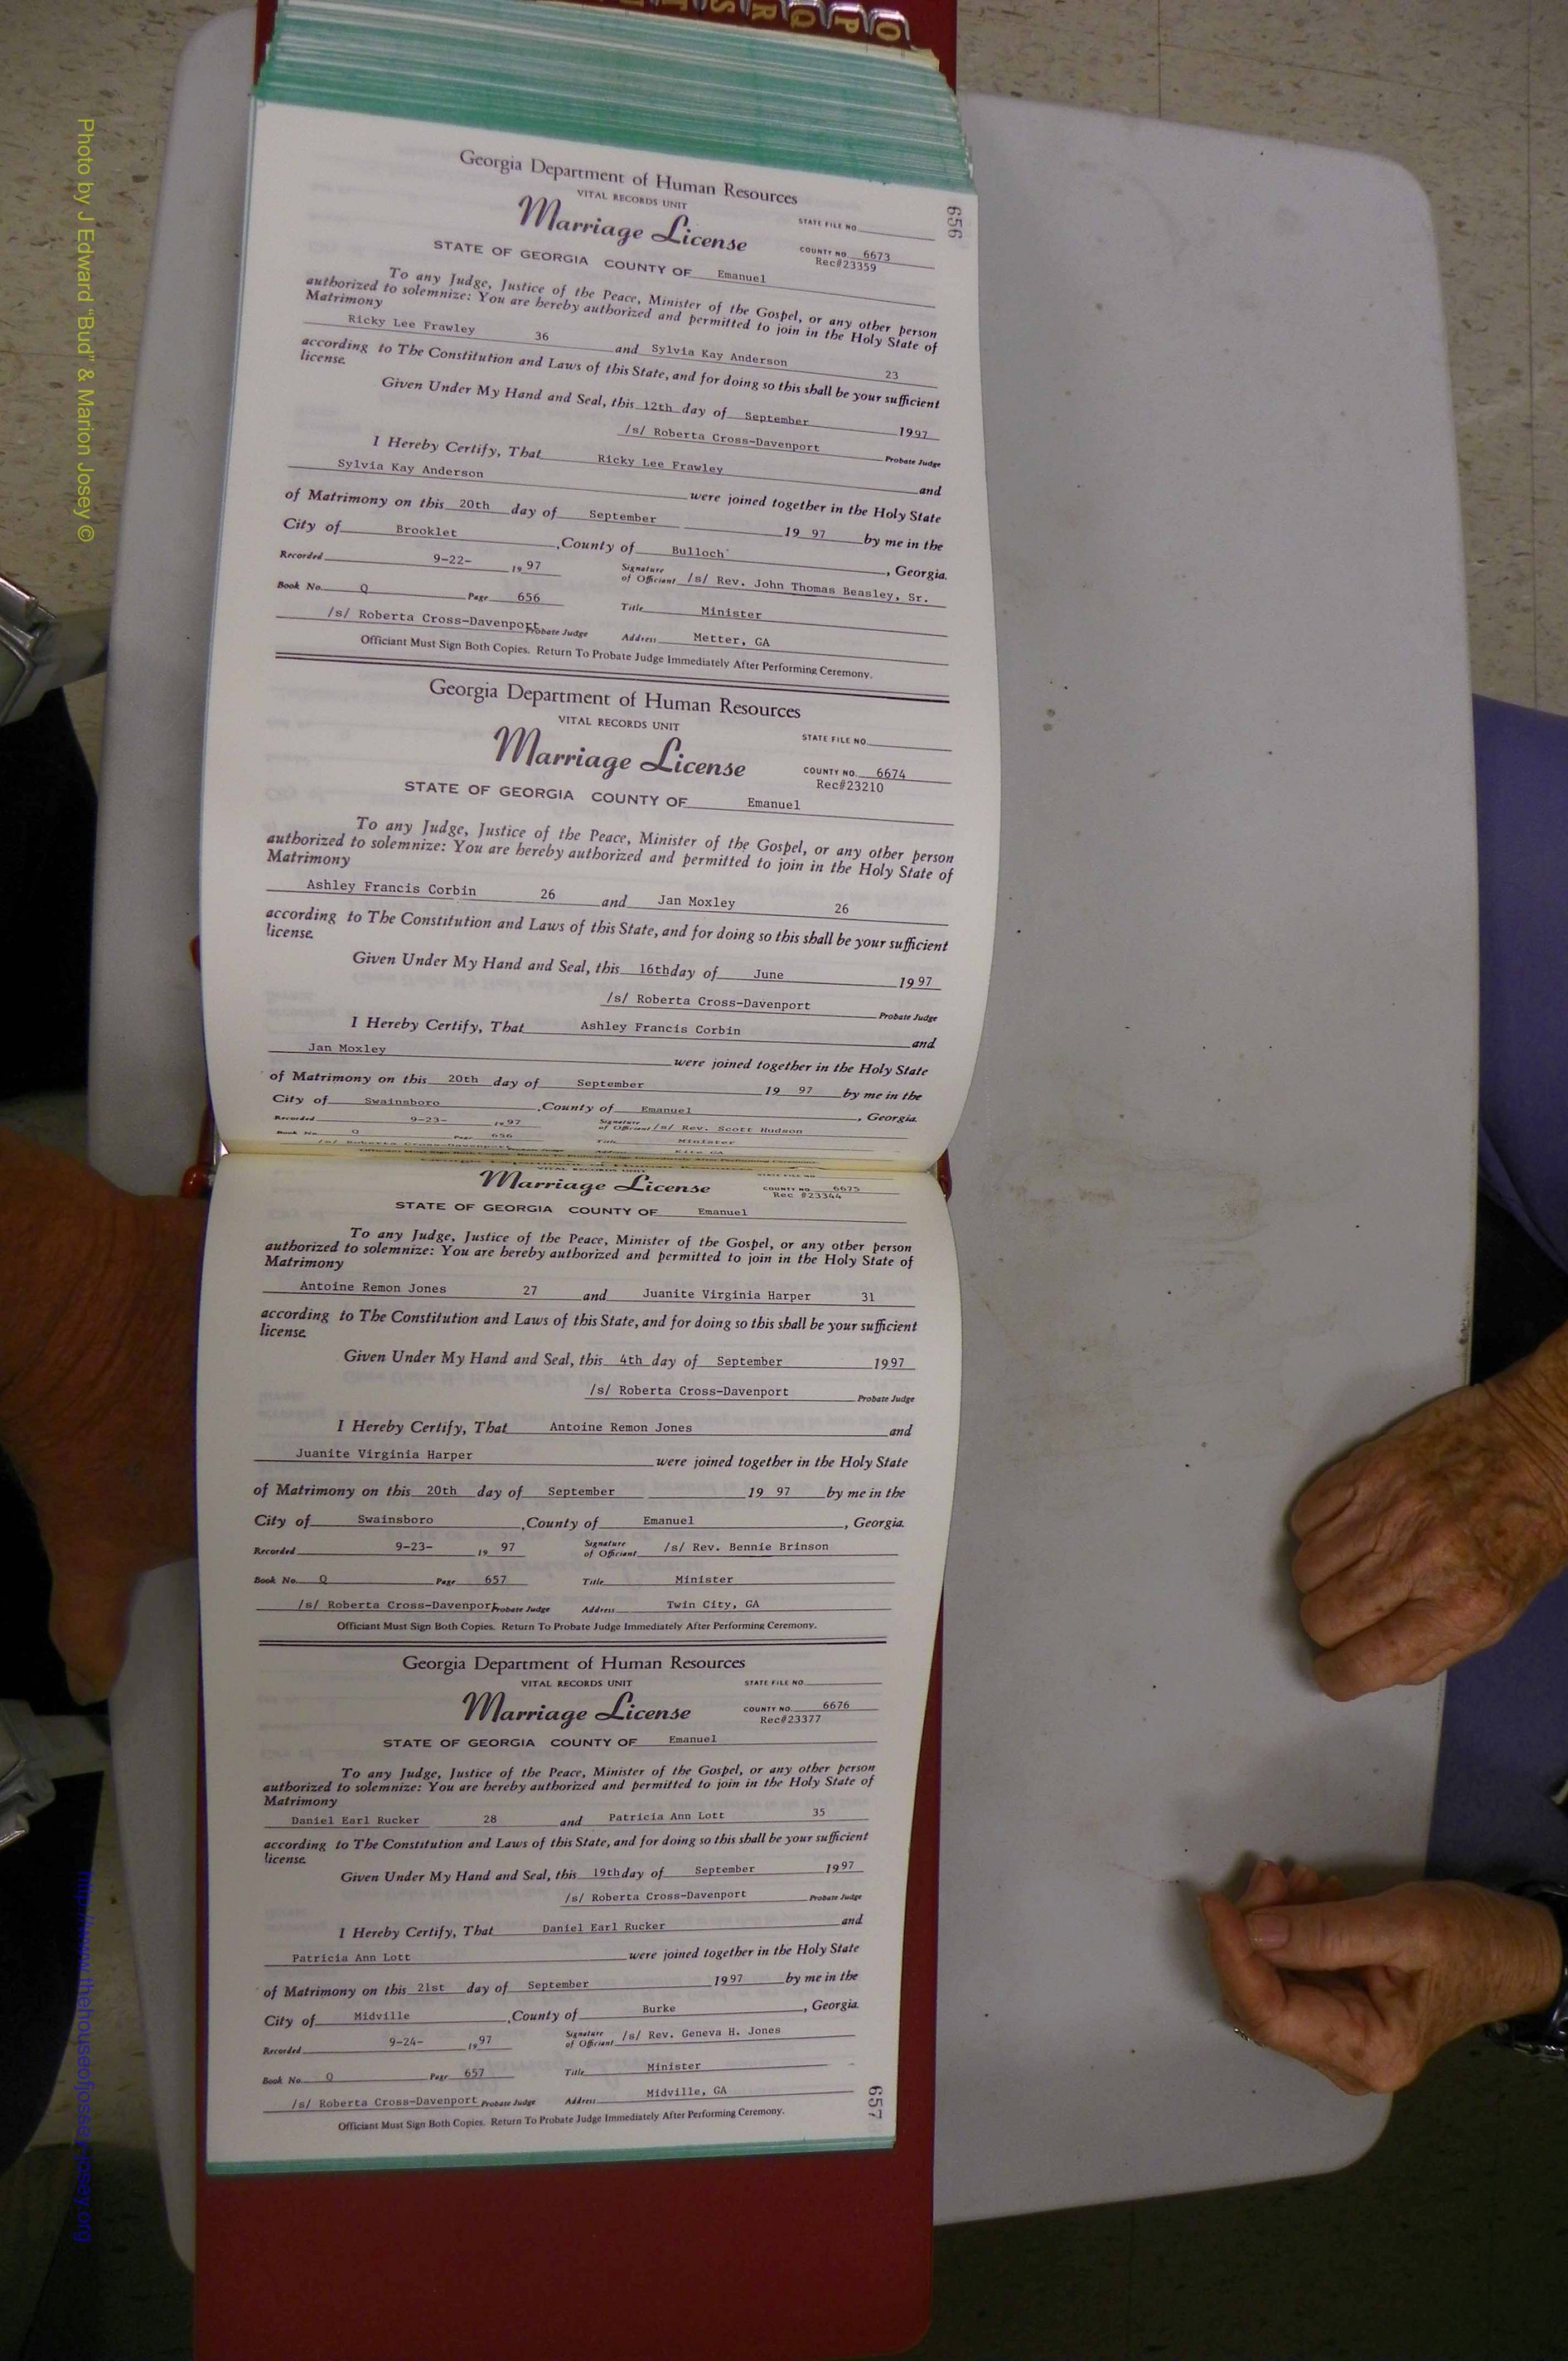 Photo by J Edward "Bud" & Marion Josey ©
O P Q R S T
656
Georgia Department of Human Resources
VITAL RECORDS UNIT
Marriage License
STATE FILE NO.
COUNTY NO. 6673
Rec#23359
STATE OF GEORGIA COUNTY OF Emanuel
To any Judge, Justice of the Peace, Minister of the Gospel, or any other person
authorized to solemnize: You are hereby authorized and permitted to join in the Holy State of
Matrimony
Ricky Lee Frawley 36 and Sylvia Kay Anderson 23
according to The Constitution and Laws of this State, and for doing so this shall be your sufficient
license.
Given Under My Hand and Seal, this 12th day of September 1997
/s/ Roberta Cross-Davenport Probate Judge
I Hereby Certify, That Ricky Lee Frawley and
Sylvia Kay Anderson were joined together in the Holy State
of Matrimony on this 20th day of September 19 97 by me in the
City of Brooklet, County of Bulloch, Georgia.
Recorded 9-22- 19 97 Signature of Officiant /s/ Rev. John Thomas Beasley, Sr.
Book No. Q Page 656 Title Minister
/s/ Roberta Cross-Davenport Probate Judge Address Metter, GA
Officiant Must Sign Both Copies. Return To Probate Judge Immediately After Performing Ceremony.
Georgia Department of Human Resources
VITAL RECORDS UNIT
Marriage License
STATE FILE NO.
COUNTY NO. 6674
Rec#23210
STATE OF GEORGIA COUNTY OF Emanuel
To any Judge, Justice of the Peace, Minister of the Gospel, or any other person
authorized to solemnize: You are hereby authorized and permitted to join in the Holy State of
Matrimony
Ashley Francis Corbin 26 and Jan Moxley 26
according to The Constitution and Laws of this State, and for doing so this shall be your sufficient
license.
Given Under My Hand and Seal, this 16th day of June 1997
/s/ Roberta Cross-Davenport Probate Judge
I Hereby Certify, That Ashley Francis Corbin and
Jan Moxley were joined together in the Holy State
of Matrimony on this 20th day of September 19 97 by me in the
City of Swainsboro, County of Emanuel, Georgia.
Recorded 9-23- 19 97 Signature of Officiant /s/ Rev. Scott Hudson
Book No. Q Page 656 Title Minister
/s/ Roberta Cross-Davenport Probate Judge Address Kite GA
Officiant Must Sign Both Copies. Return To Probate Judge Immediately After Performing Ceremony.
Georgia Department of Human Resources
VITAL RECORDS UNIT
Marriage License
STATE FILE NO.
COUNTY NO. 6675
Rec #23344
STATE OF GEORGIA COUNTY OF Emanuel
To any Judge, Justice of the Peace, Minister of the Gospel, or any other person
authorized to solemnize: You are hereby authorized and permitted to join in the Holy State of
Matrimony
Antoine Remon Jones 27 and Juanite Virginia Harper 31
according to The Constitution and Laws of this State, and for doing so this shall be your sufficient
license.
Given Under My Hand and Seal, this 4th day of September 1997
/s/ Roberta Cross-Davenport Probate Judge
I Hereby Certify, That Antoine Remon Jones and
Juanite Virginia Harper were joined together in the Holy State
of Matrimony on this 20th day of September 19 97 by me in the
City of Swainsboro, County of Emanuel, Georgia.
Recorded 9-23- 19 97 Signature of Officiant /s/ Rev. Bennie Brinson
Book No. Q Page 657 Title Minister
/s/ Roberta Cross-Davenport Probate Judge Address Twin City, GA
Officiant Must Sign Both Copies. Return To Probate Judge Immediately After Performing Ceremony.
Georgia Department of Human Resources
VITAL RECORDS UNIT
Marriage License
STATE FILE NO.
COUNTY NO. 6676
Rec#23377
STATE OF GEORGIA COUNTY OF Emanuel
To any Judge, Justice of the Peace, Minister of the Gospel, or any other person
authorized to solemnize: You are hereby authorized and permitted to join in the Holy State of
Matrimony
Daniel Earl Rucker 28 and Patricia Ann Lott 35
according to The Constitution and Laws of this State, and for doing so this shall be your sufficient
license.
Given Under My Hand and Seal, this 19th day of September 1997
/s/ Roberta Cross-Davenport Probate Judge
I Hereby Certify, That Daniel Earl Rucker and
Patricia Ann Lott were joined together in the Holy State
of Matrimony on this 21st day of September 1997 by me in the
City of Midville, County of Burke, Georgia.
Recorded 9-24- 19 97 Signature of Officiant /s/ Rev. Geneva H. Jones
Book No. Q Page 657 Title Minister
/s/ Roberta Cross-Davenport Probate Judge Address Midville, GA
Officiant Must Sign Both Copies. Return To Probate Judge Immediately After Performing Ceremony.
657
http://www.thehouseofjossey-josey.org